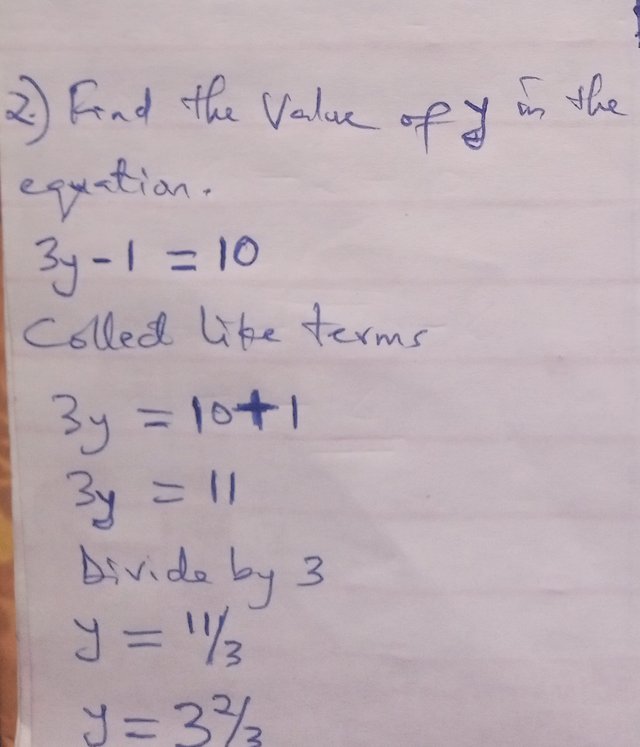 2.) Find the Value of y in the
equation.
3y - 1 = 10
Collect like terms
3y = 10 + 1
3y = 11
Divide by 3
y = 11/3
y = 3 2/3